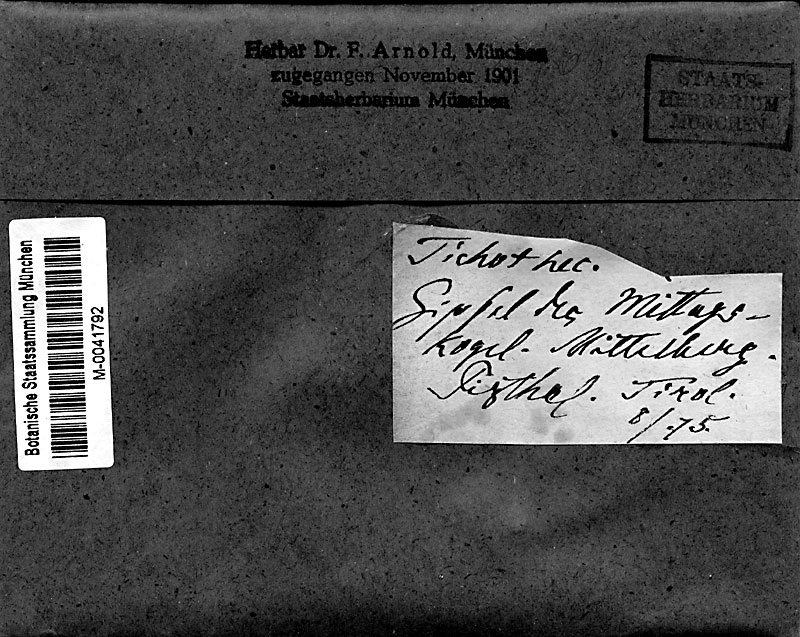 Herbar Dr. F. Arnold, München
zugegangen November 1901
Staatsherbarium München
STAATS-
HERBARIUM
MÜNCHEN
Botanische Staatssammlung München
M-0041792
Tichothec.
Gipfel des Mittags-
kogel. Mittelberg.
Pitzthal. Tirol.
8/75.